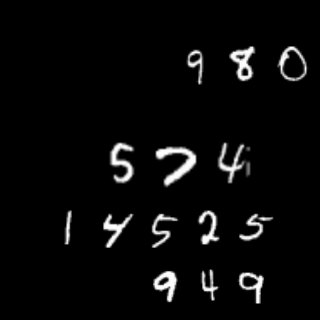 980
574
14525
949